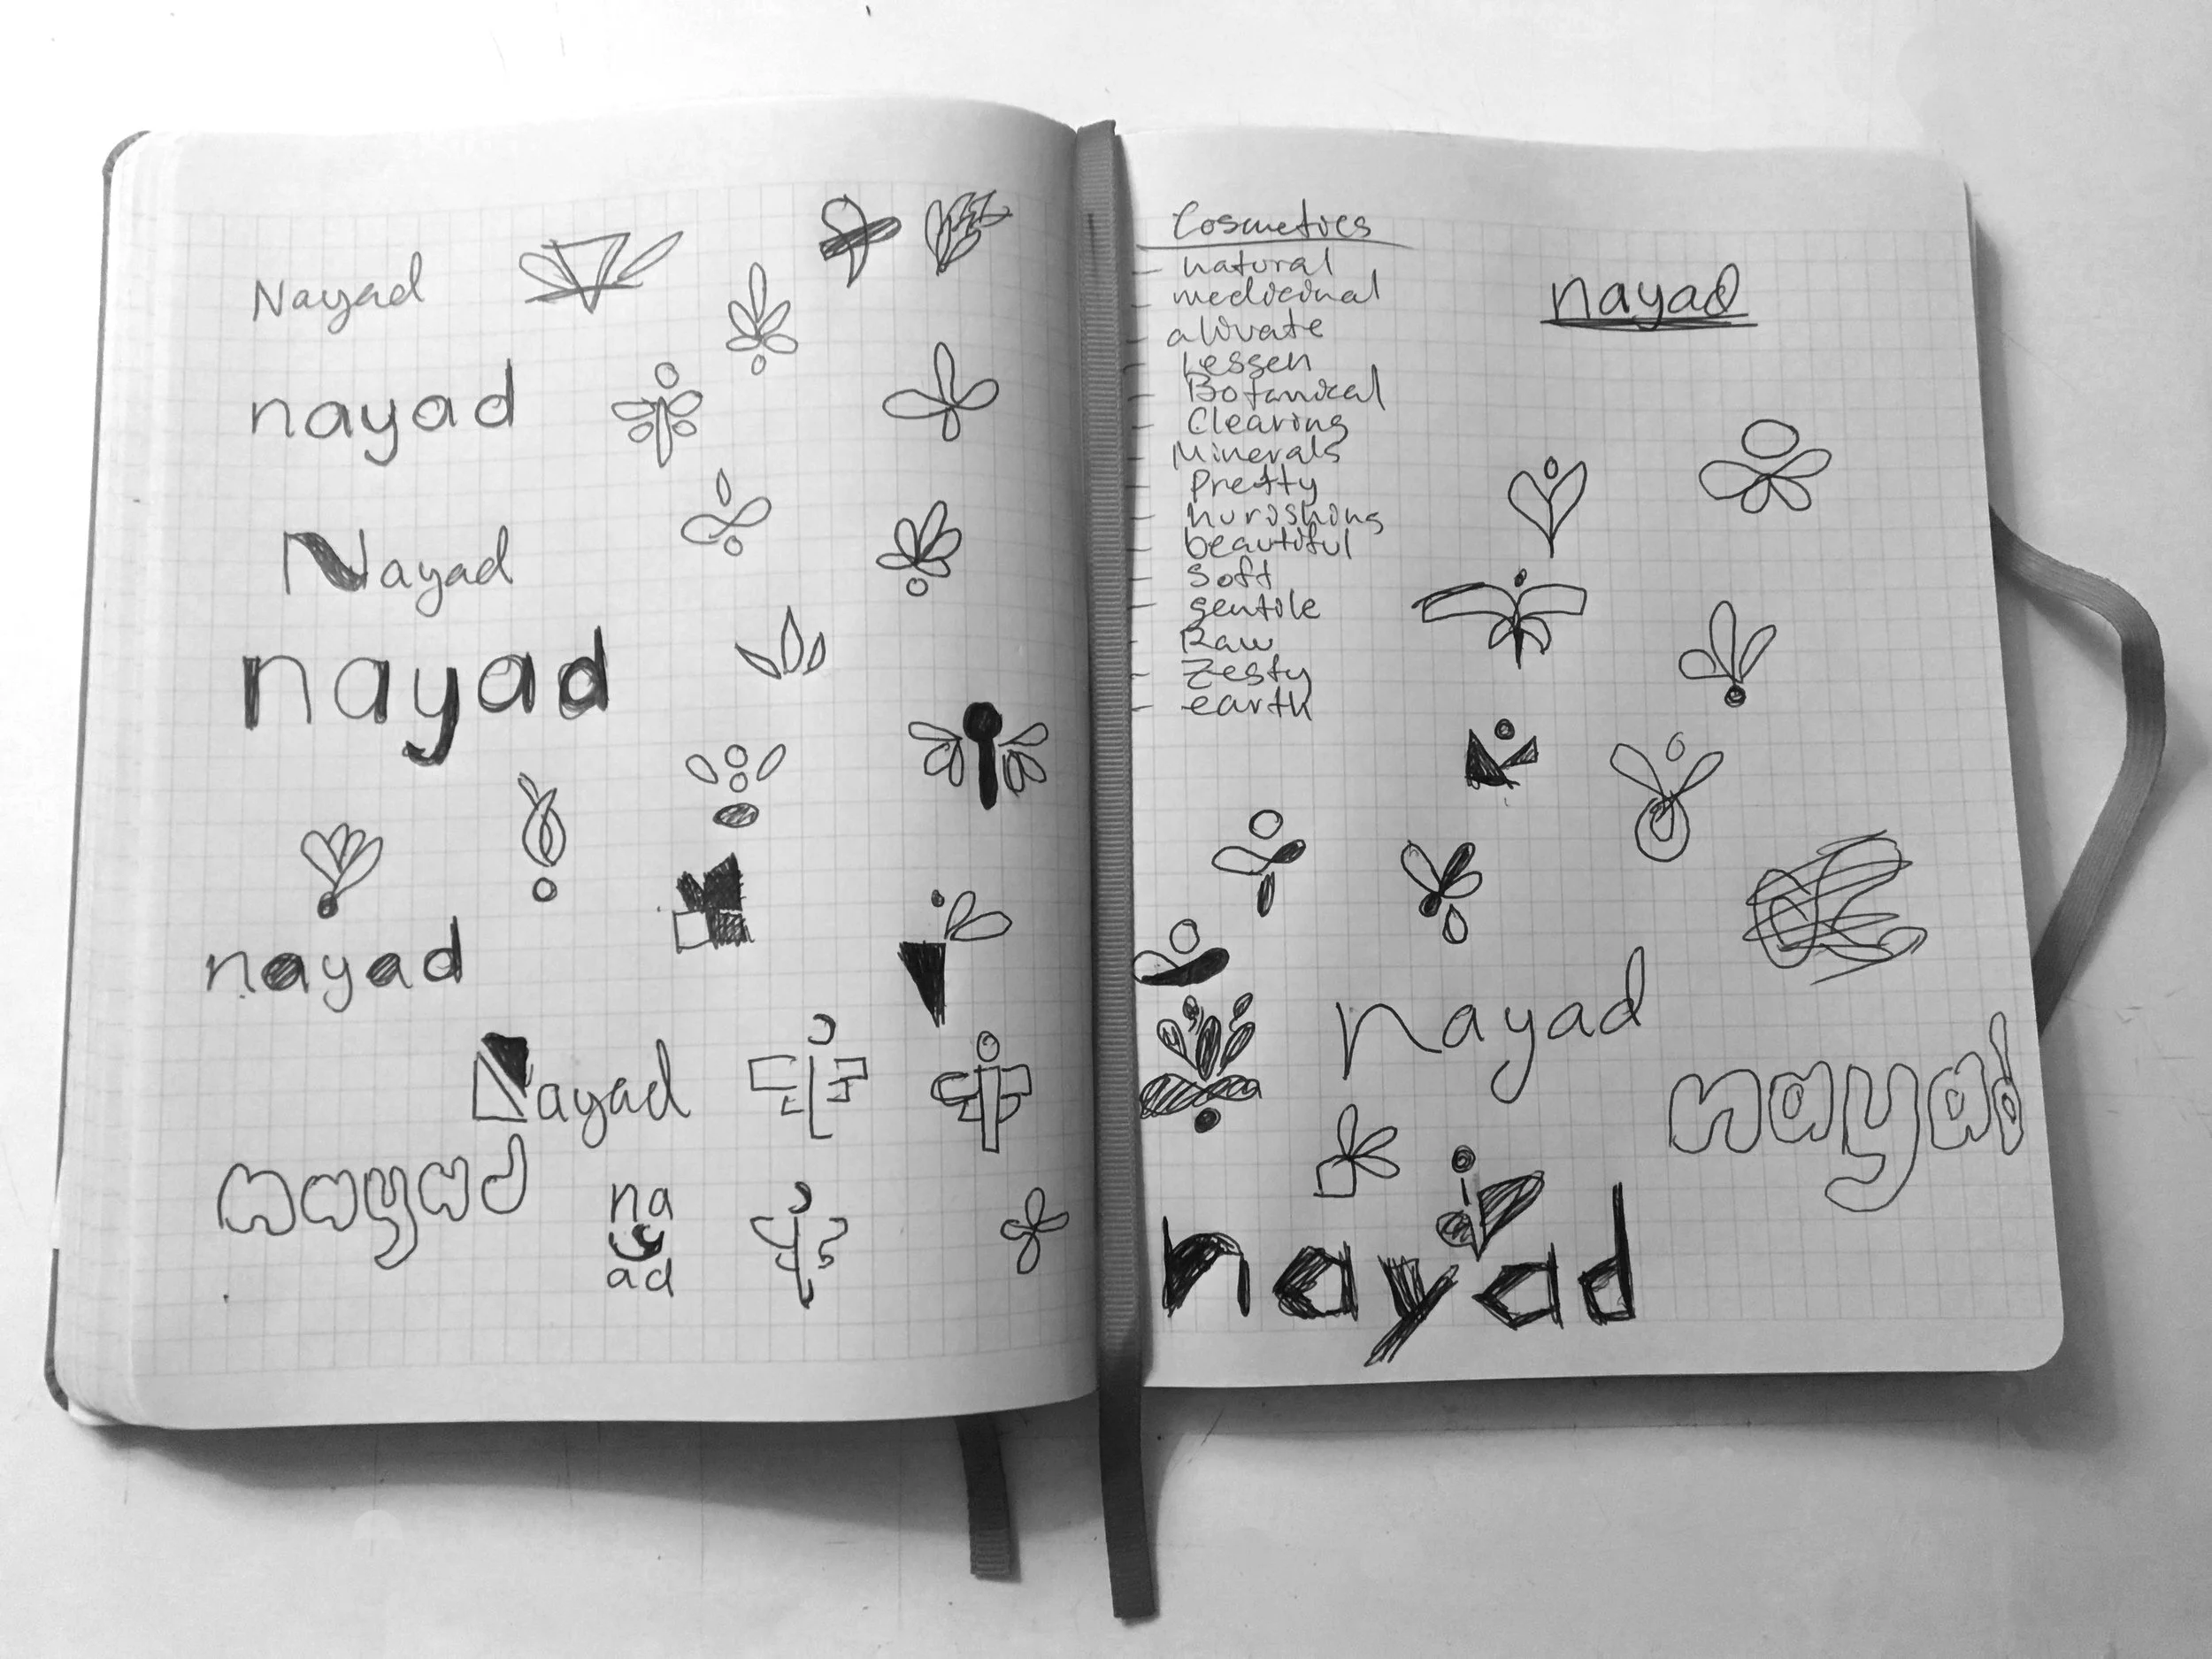 Nayad
nayad
Nayad
nayad
nayad
Nayad
nayad
na
y
ad
Cosmetics
- natural
- medicinal
- alivate
- Lessen
- Botanical
- Clearing
- Minerals
- Pretty
- nurishing
- beautiful
- Soft
- gentile
- Raw
- Zesty
- earth
nayad
nayad
nayad
nayad